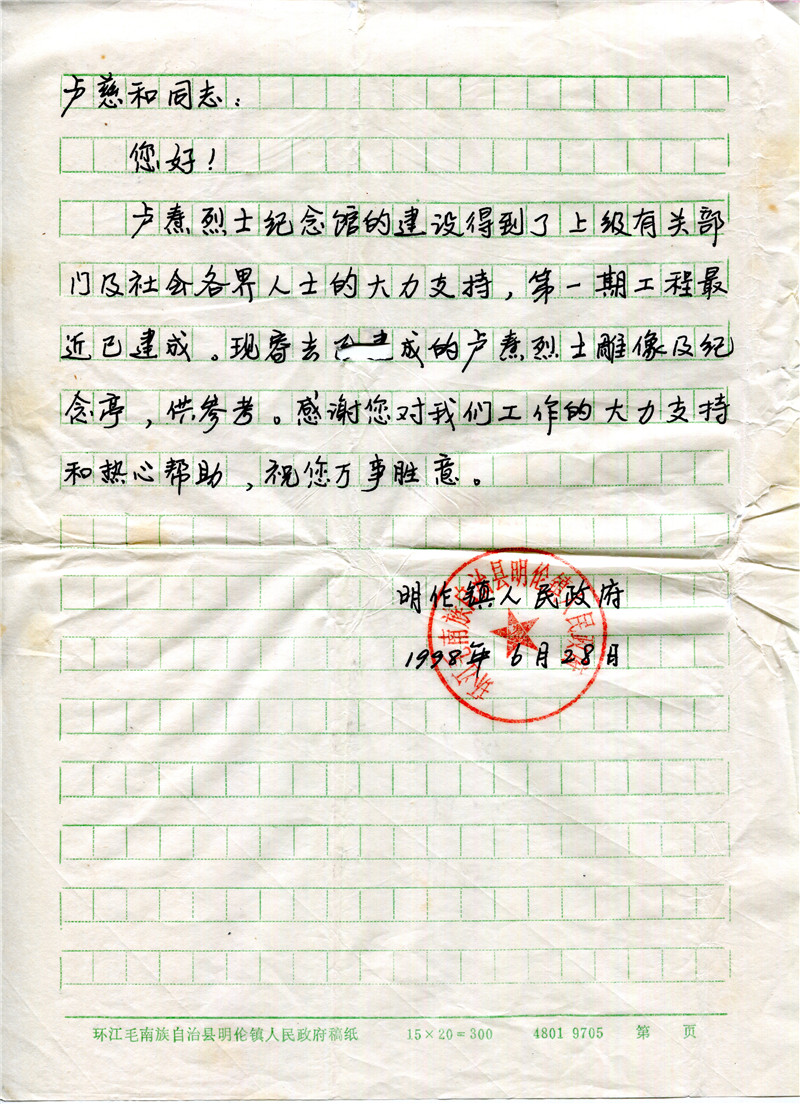 卢慈和同志：
您好！
卢焘烈士纪念馆的建设得到了上级有关部
门及社会各界人士的大力支持，第一期工程最
近已建成。现寄去已建成的卢焘烈士雕像及纪
念亭，供参考。感谢您对我们工作的大力支持
和热心帮助，祝您万事胜意。
明伦镇人民政府
1998年6月28日
环江毛南族自治县明伦镇人民政府
环江毛南族自治县明伦镇人民政府稿纸 15×20=300 4801 9705 第 页